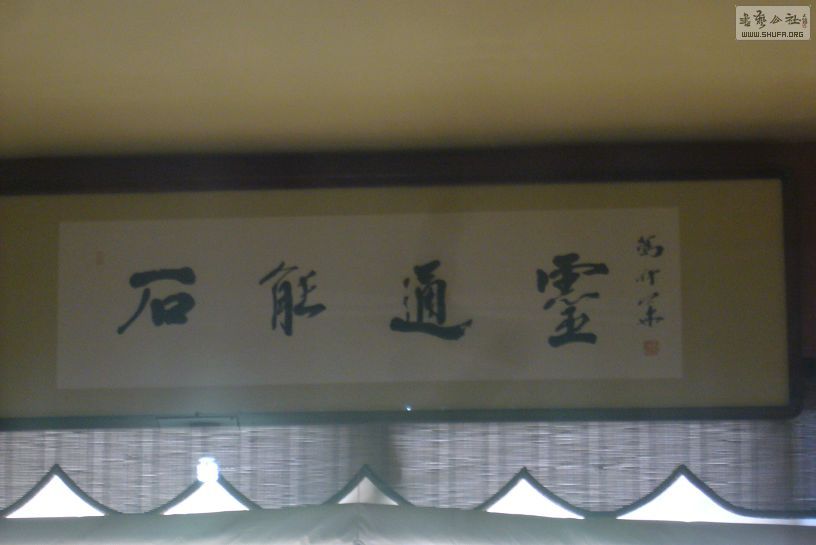 石能通靈
書藝公社
WWW.SHUFA.ORG